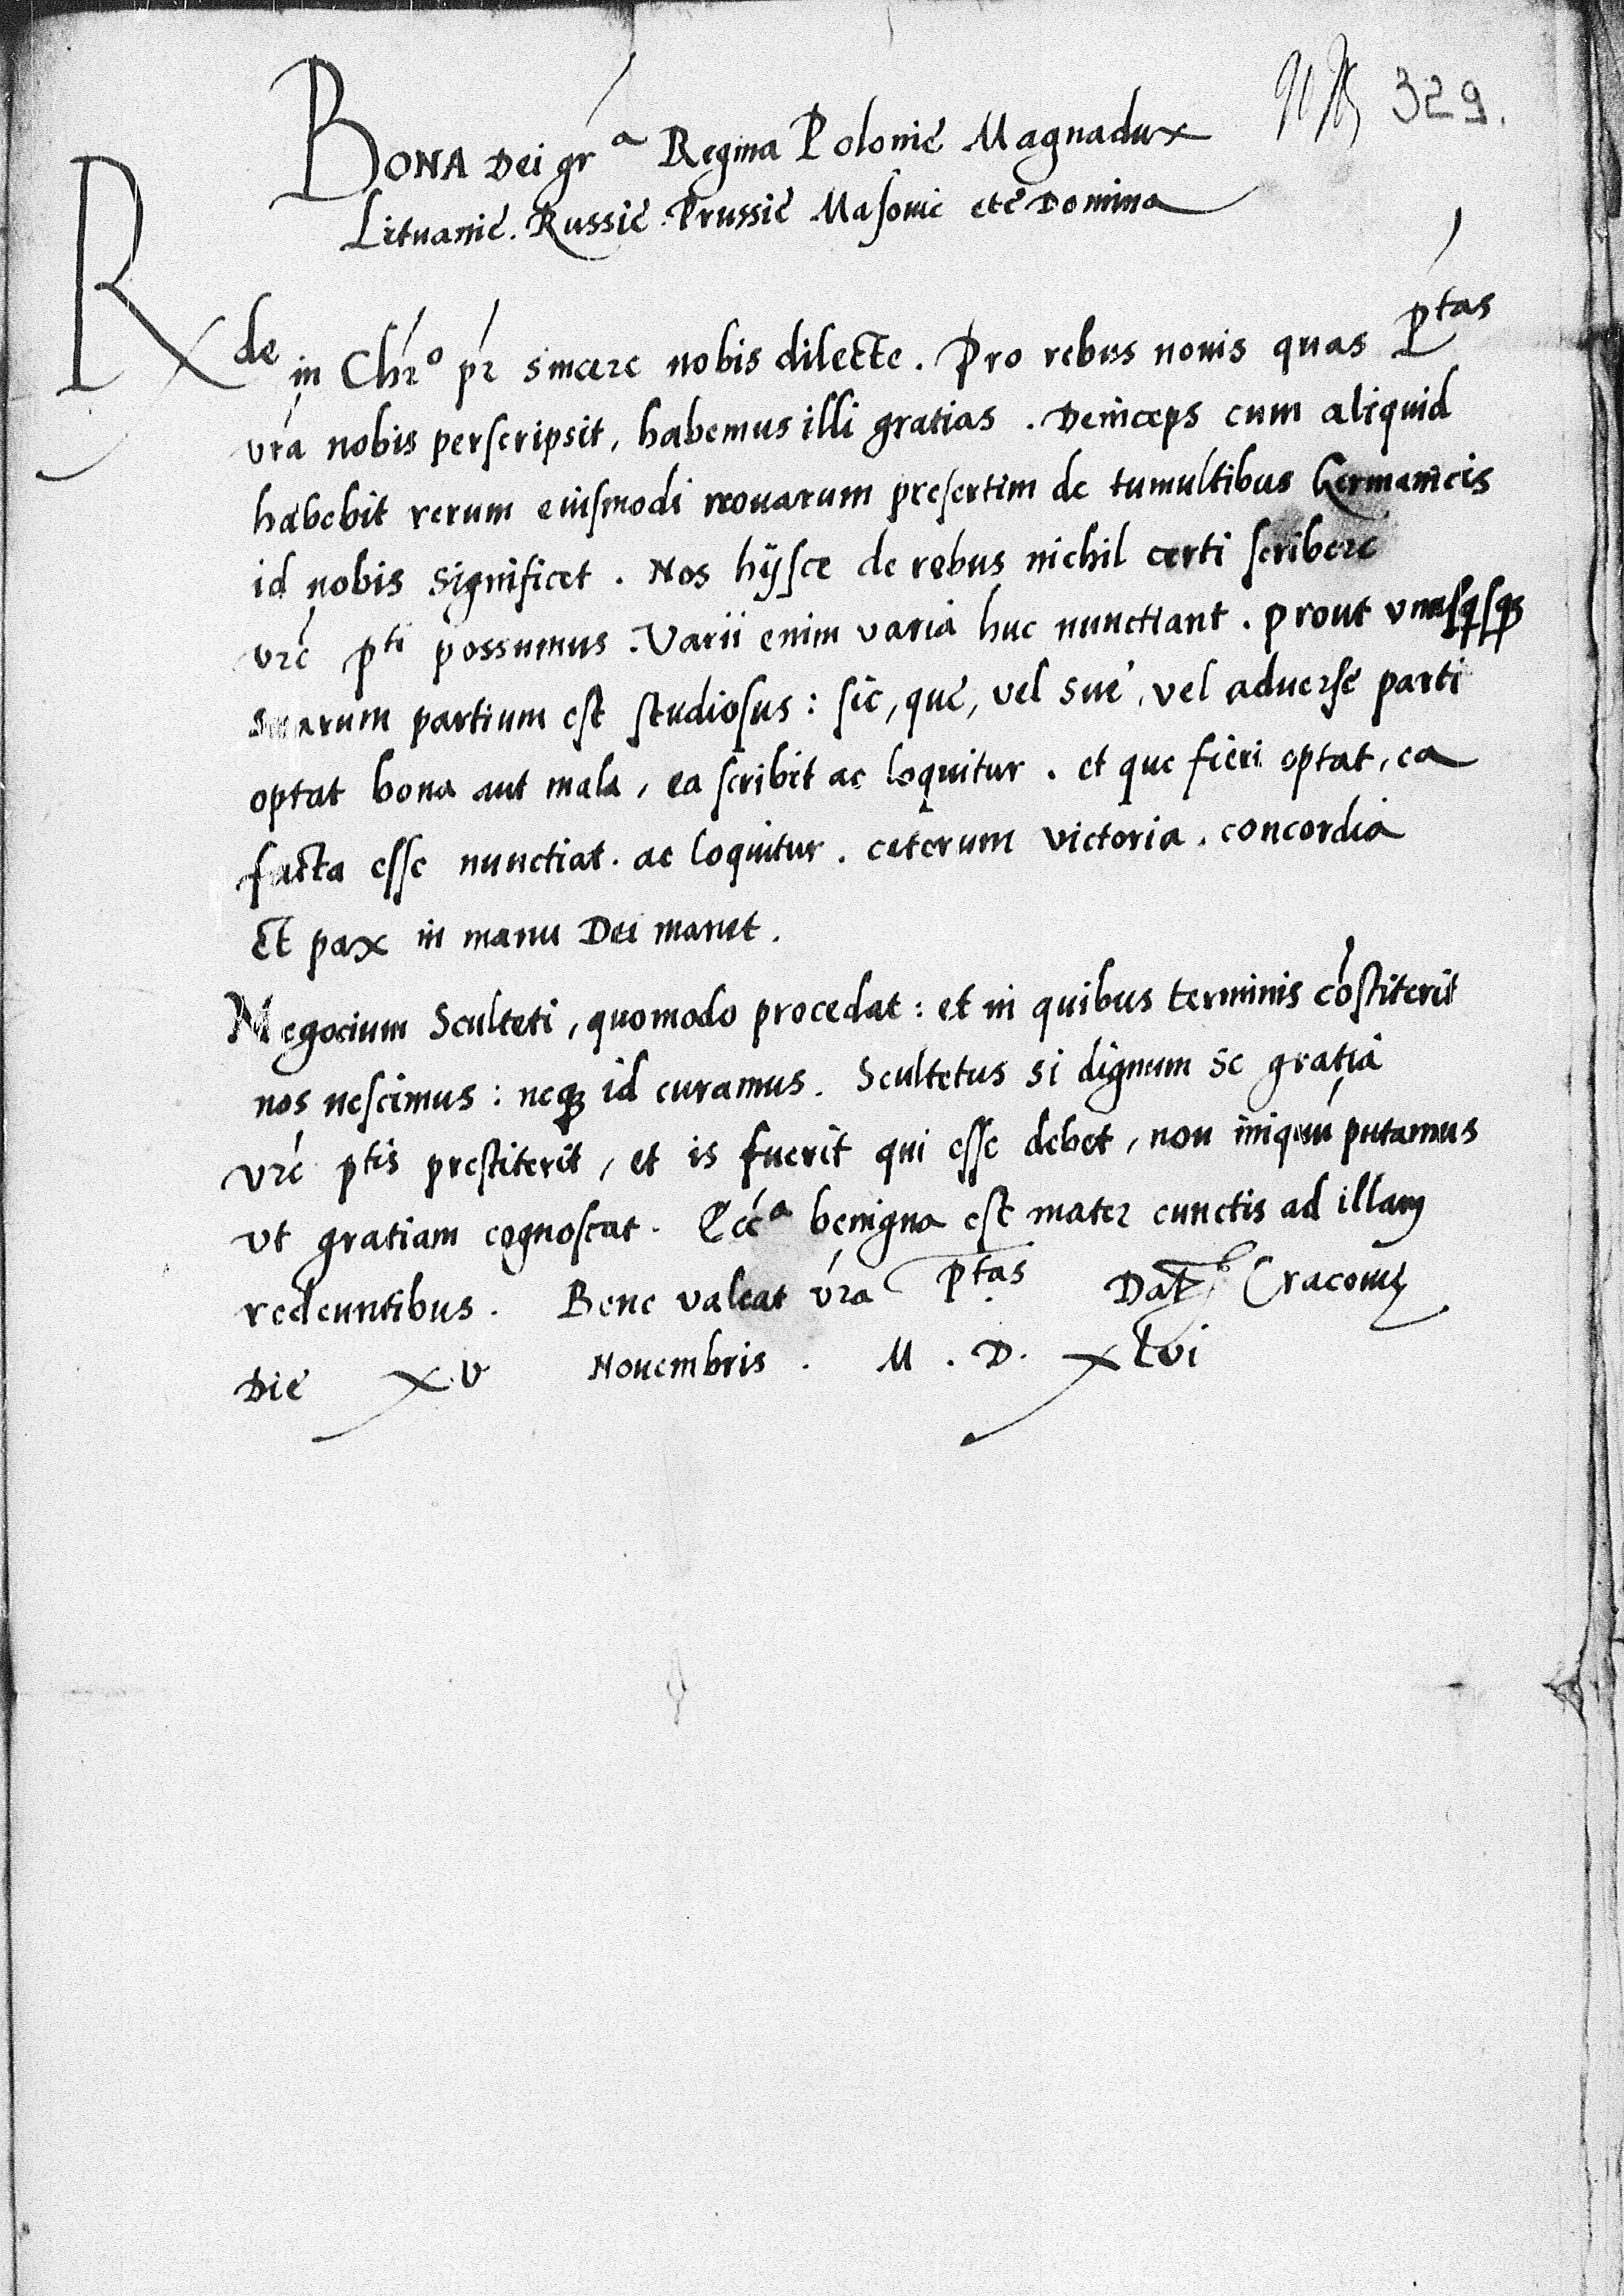 329.
BONA Dei gr̃a Regina Polonię Magnadux
Lituanię. Russię. Prussię Masouię etc̃ Domina
Rde in Chr̃o pr̃ sincere nobis dilecte. Pro rebus nouis quas Ptas
vr̃a nobis perscripsit, habemus illi gratias. Deinceps cum aliquid
habebit rerum eiusmodi nouarum presertim de tumultibus Germanicis
id nobis significet. Nos hijsce de rebus nichil certi scribere
vr̃e pti possumus. Varii enim varia huc nunctiant. prout vnusqsqȝ
suarum partium est studiosus: sic, quę, vel suę, vel aduersę parti
optat bona aut mala, ea scribit ac loquitur. et que fieri optat, ea
facta esse nunctiat. ac loquitur. ceterum victoria. concordia
Et pax in manu Dei manet.
Negocium Sculteti, quomodo procedat: et in quibus terminis cõstiterit
nos nescimus: neqȝ id curamus. Scultetus si dignum se gratia
vr̃e ptis prestiterit, et is fuerit qui esse debet, non iniquũ putamus
vt gratiam cognoscat. Ecc̃a benigna est mater cunctis ad illam
redeuntibus. Bene valeat vr̃a Ptas Dat Cracouię
Die xv Nouembris. M. D. xlvi